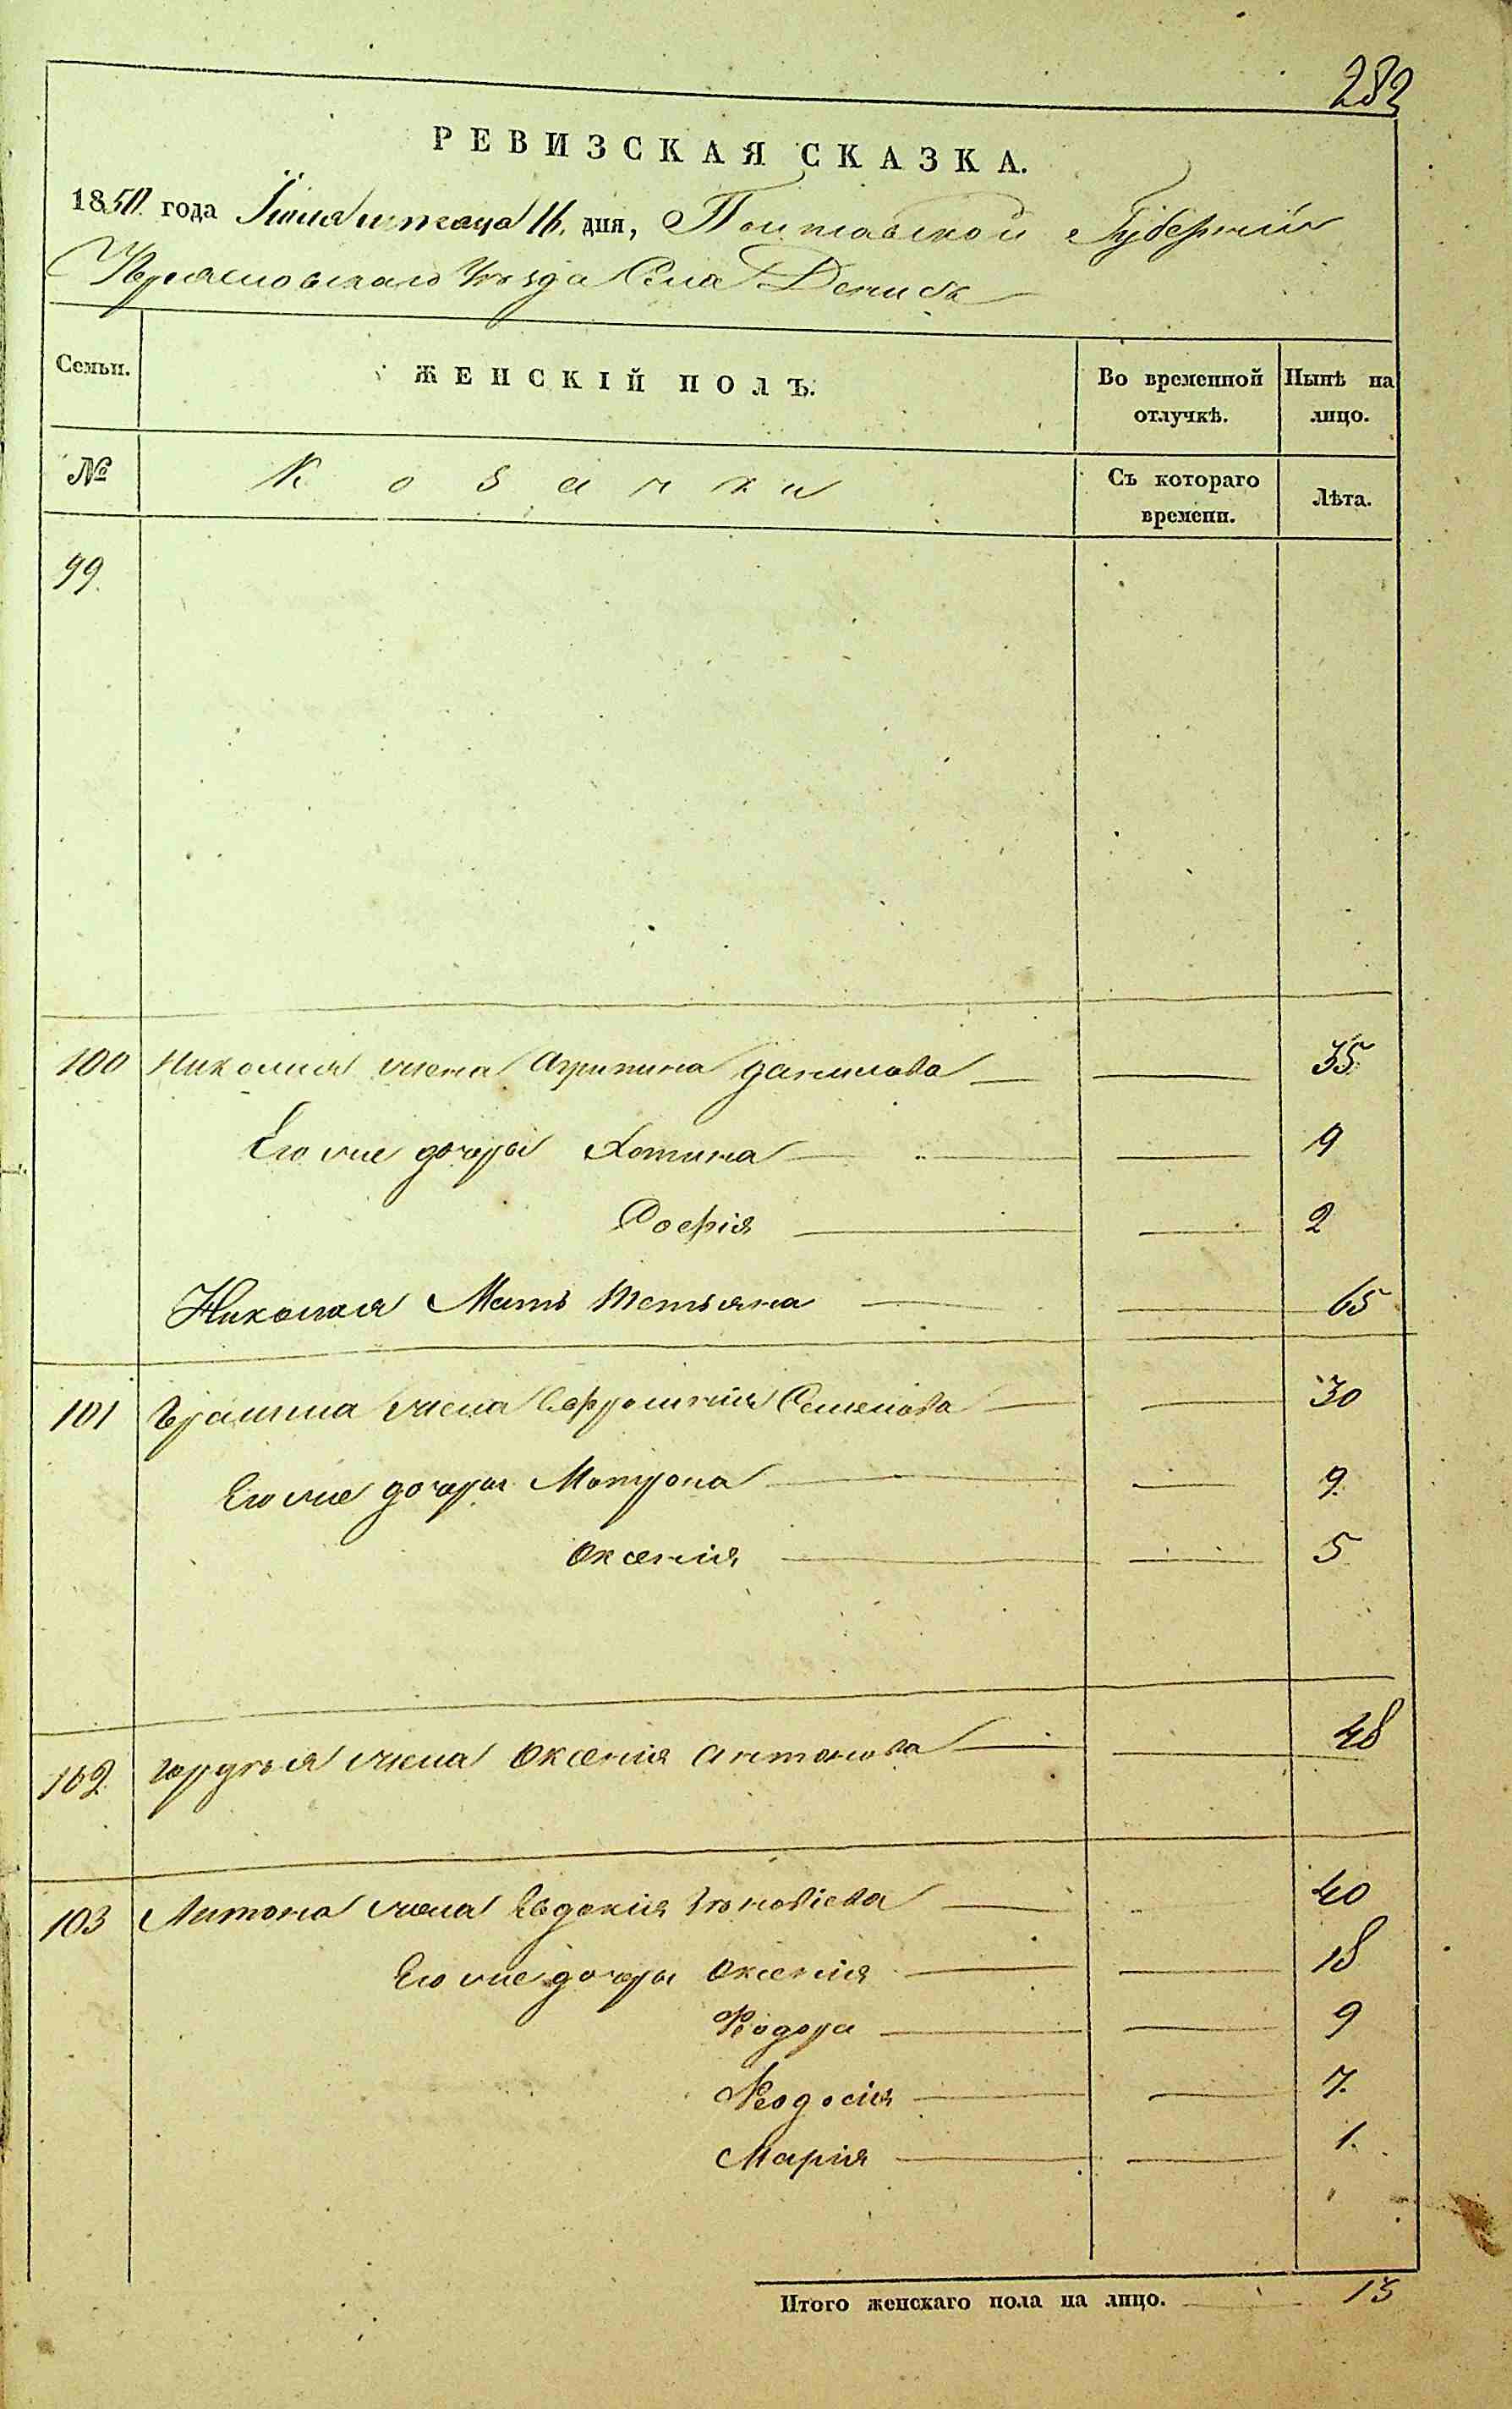 282
РЕВИЗСКАЯ СКАЗКА.
1850 года Іюня мѣсяца 16 дня, Полтавской Губерніи
Переяславскаго Уѣзда Села Денисъ
Семьи. ЖЕНСКІЙ ПОЛЪ. Во временной отлучкѣ. Нынѣ на лицо.
№ Козачки Съ котораго времени. Лѣта.
99.
100 Николая жена Агрипина Данилова 35
Его же дочери Хотина 9
Софія 2
Николая Мать Татьяна 65
101 жена Ефросинія Семенова 30
Его же дочери Мотрона 9.
Оксенія 5
102. Гордѣя жена Оксенія Антонова 48
103 Антона жена Евдокія 40
Его же дочери Оксенія 18
Феодора 9
Феодосія 7.
Марія 1.
Итого женскаго пола на лицо. 13